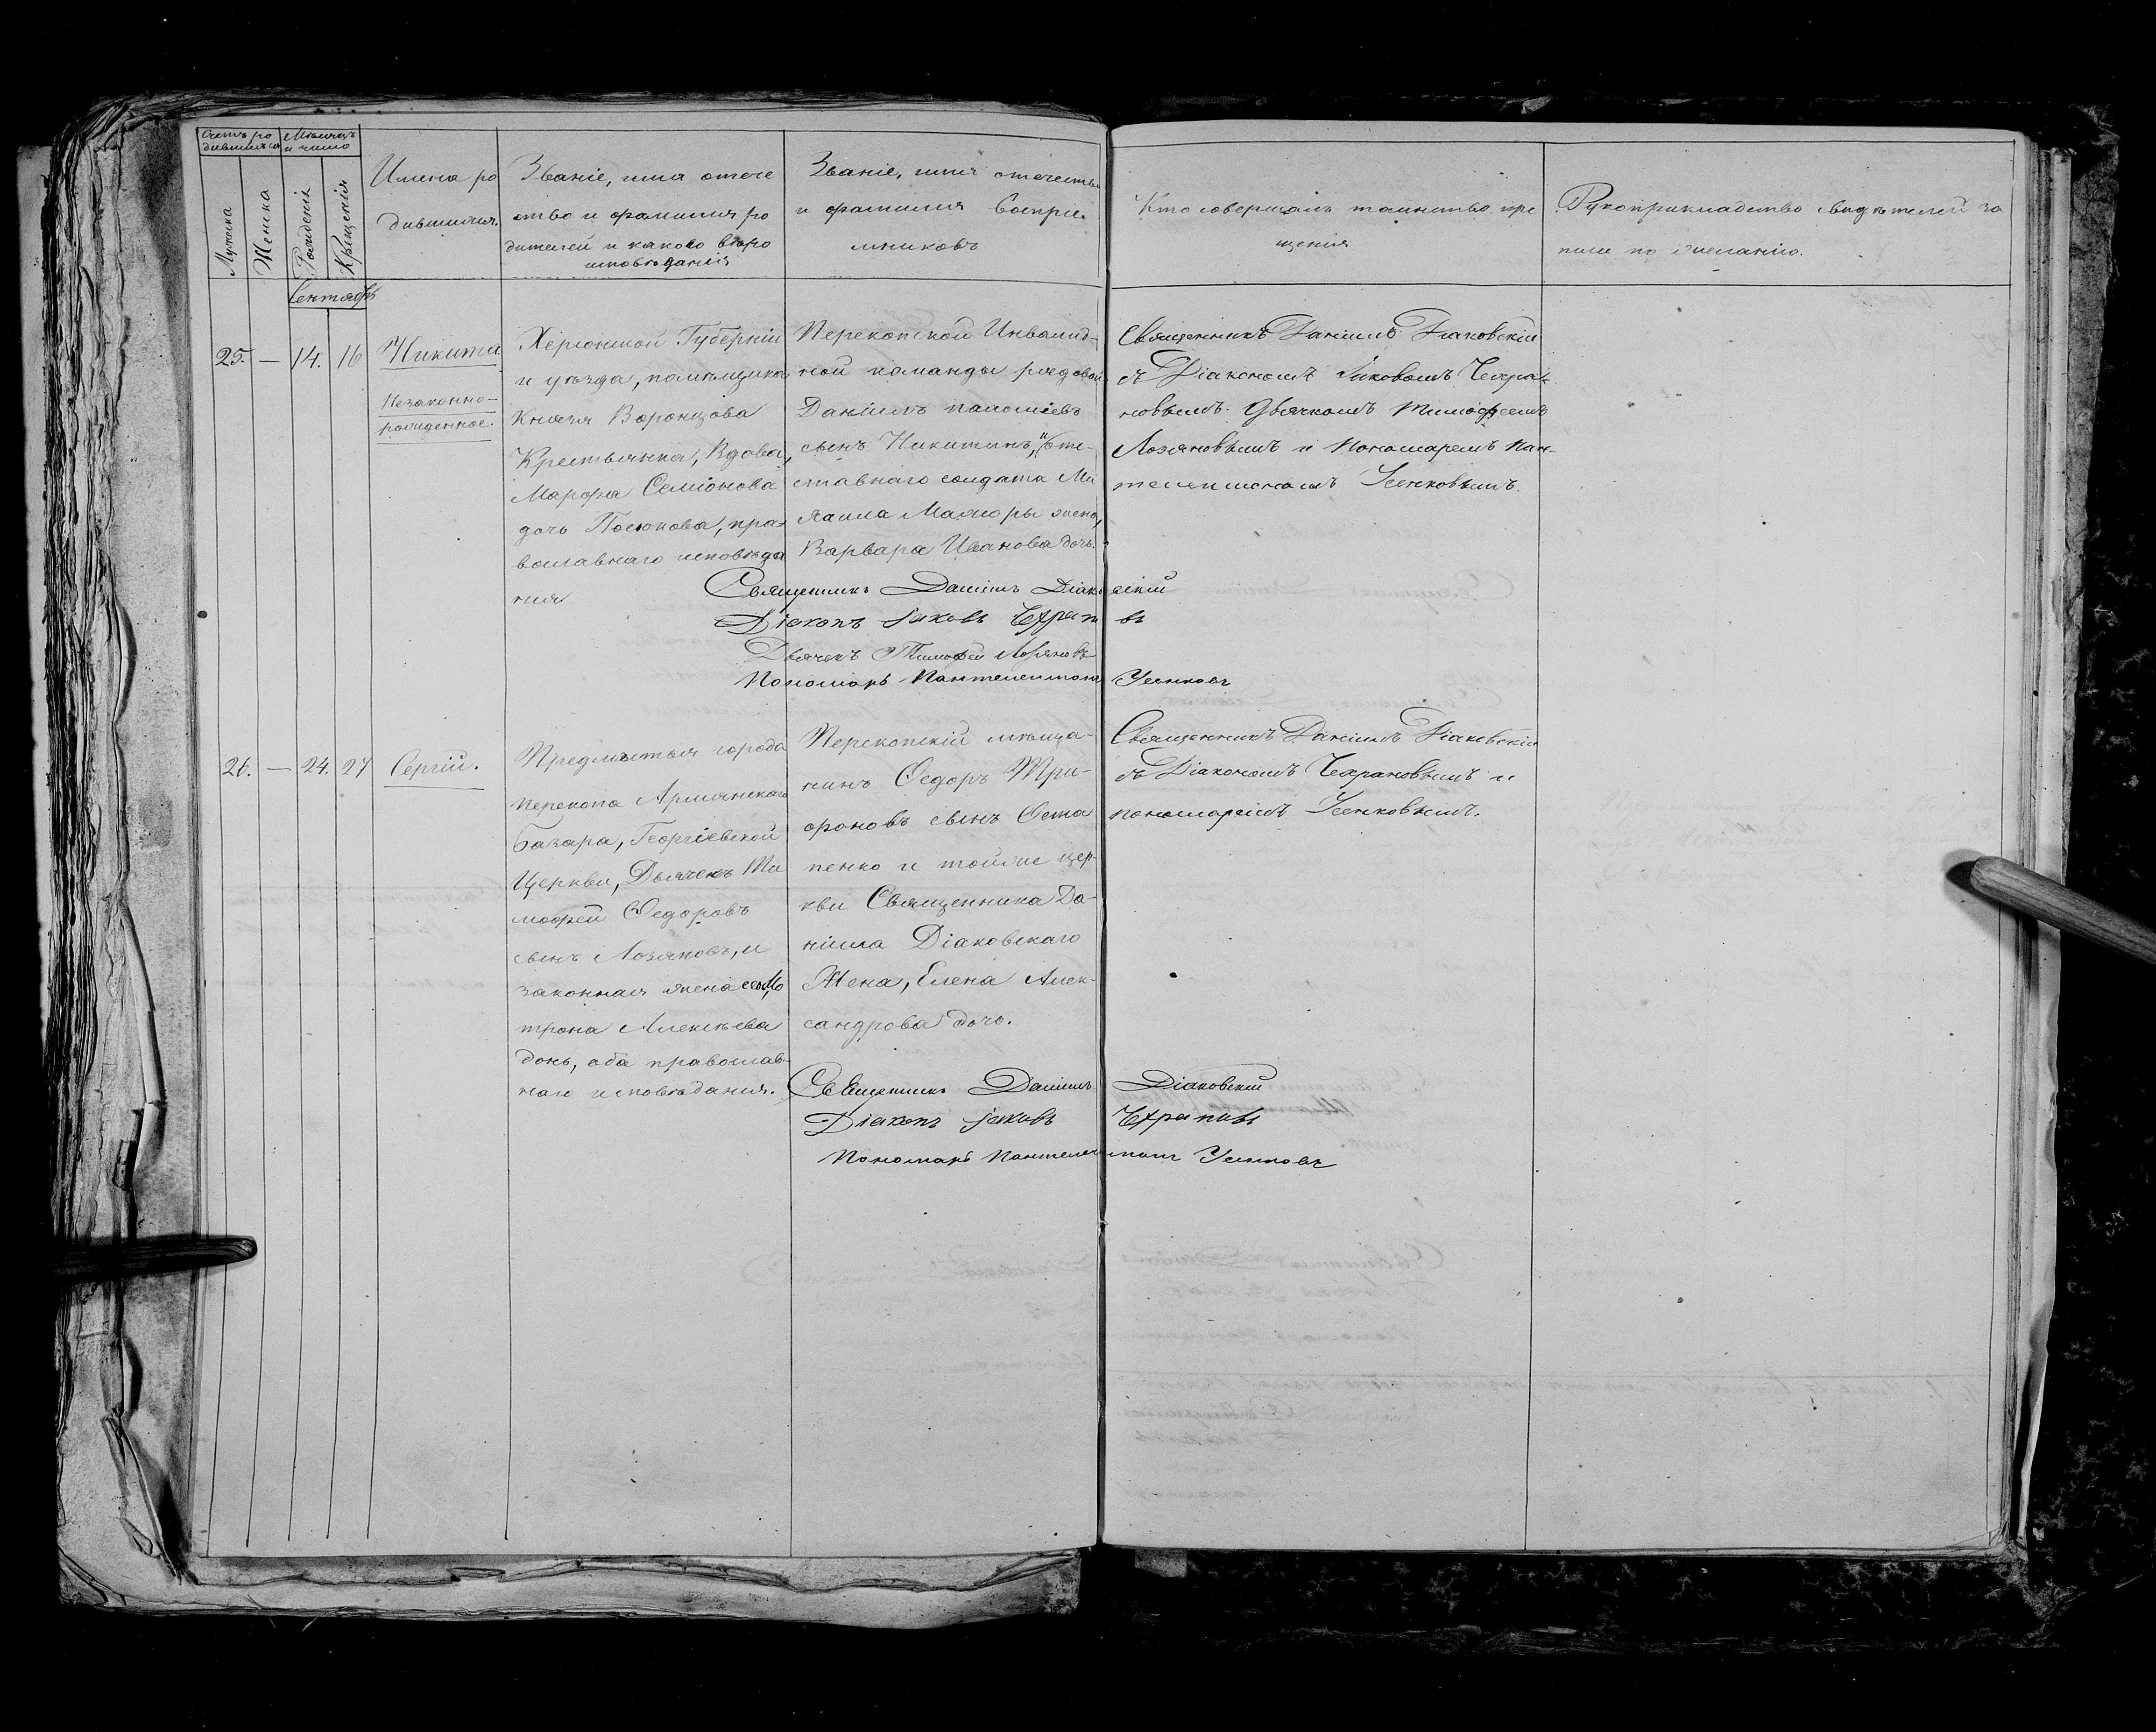 Счетъ ро
дившихся
Мѣсяцъ
и число
Мужеска
Женска
Рожденія
Крещенія
Имена ро
дившихся.
Званіе, имя отече
ство и фамилия ро
дителей и какого вѣро
исповѣданія
Званіе, имя отечество
и фамилия воспріе
мниковъ
Кто совершалъ таинство кре
щенія
Рукоприкладство свидѣтелей за
писи по желанію.
Сентябрь
25. — 14. 16
Никита
Незаконно-
рожденное.
Херсонской Губерніи
и уѣзда, помѣщика
Князя Воронцова
Крестьянка, Вдова,
Марфа Семіонова
дочь, пра
вославнаго исповѣда
ния
Перекопской Инвалид-
ной команды рядовой
Даніилъ
сынъ Никитинъ, и Отс-
тавнаго солдата Ми
хаила жена,
Варвара Иванова дочь.
Священникъ Даніилъ Діаковскій
съ Діакономъ Іаковомъ Чехра-
новымъ. Дьячкомъ Тимофеемъ
Лозяновымъ и Пономаремъ Пан-
телеимономъ Усенковымъ.
Священникъ Даніилъ Діаковскій
Діаконъ Іаковъ Чехрановъ
Дьячекъ Тимофей Лозяновъ
Пономарь Пантелеимонъ Усенковъ
26. — 24. 27
Сергій.
Предмѣстья города
Перекопа Армянскаго
Базара, Георгіевской
Церкви, Дьячекъ Ти
мофей Ѳедоровъ
сынъ Лозяновъ, и
законная жена его Ма
трона Алексѣева
дочь, оба православ-
наго исповѣданія.
Перекопскій мѣща-
нинъ Ѳедоръ Три-
фоновъ сынъ Оста
пенко и тойже цер-
кви Священника Да-
ніила Діаковскаго
Жена, Елена Алек-
сандрова дочь.
Священникъ Даніилъ Діаковскій
съ Діакономъ Чехрановымъ и
пономаремъ Усенковымъ.
Священникъ Даніилъ Діаковскій
Діаконъ Іаковъ Чехрановъ
Пономарь Пантелеимонъ Усенковъ